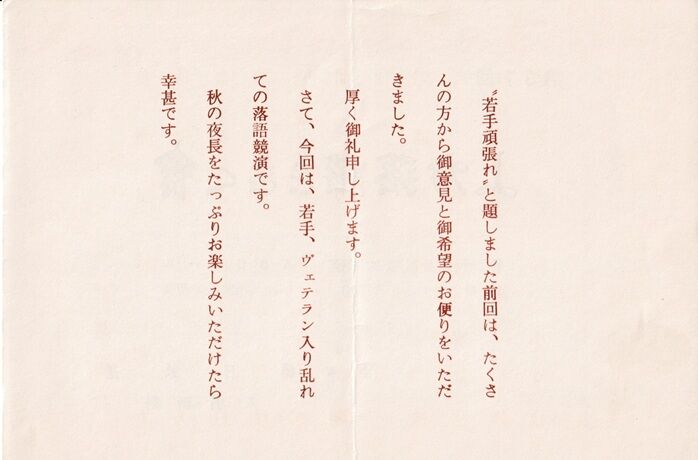 〝若手頑張れ〟と題しました前回は、たくさ
んの方から御意見と御希望のお便りをいただ
きました。
厚く御礼申し上げます。
さて、今回は、若手、ヴェテラン入り乱れ
ての落語競演です。
秋の夜長をたっぷりお楽しみいただけたら
幸甚です。